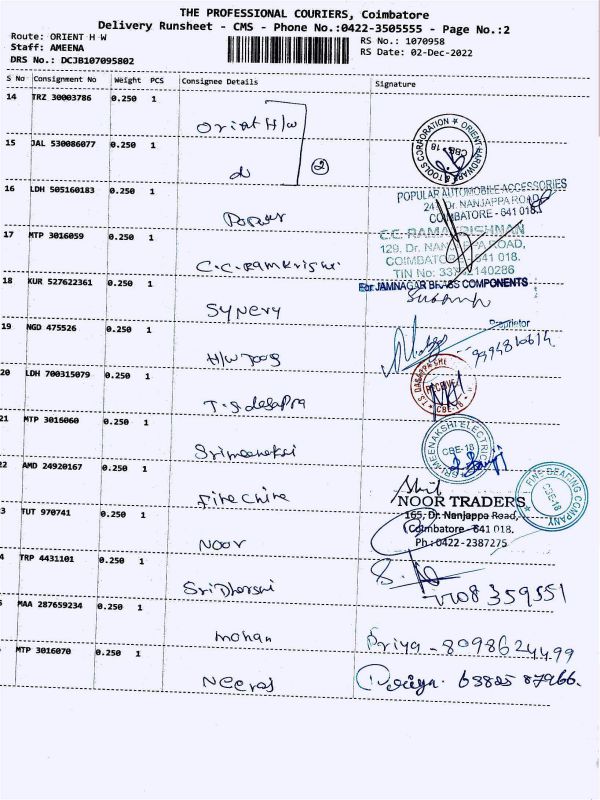 THE PROFESSIONAL COURIERS, Coimbatore
Delivery Runsheet - CMS - Phone No.:0422-3505555 - Page No.:2
Route: ORIENT H W
Staff: AMEENA
DRS No.: DCJB107095802
RS No.: 1070958
RS Date: 02-Dec-2022
S No Consignment No Weight PCS Consignee Details Signature
14 TRZ 30003786 0.250 1 Orient H/W
ORIENT HARDWARE & TOOLS CORPORATION CBE-18
15 JAL 530086077 0.250 1 2
16 LDH 505160183 0.250 1 Popular
POPULAR AUTOMOBILE ACCESSORIES
Dr. NANJAPPA ROAD,
COIMBATORE - 641 018.
17 MTP 3016059 0.250 1 C.C.Ramkrishi
C.C. RAMAKRISHNAN
129, Dr. NANJAPPA ROAD,
COIMBATORE 641 018.
TIN No: 140286
18 KUR 527622361 0.250 1 Synery
For JAMNAGAR BRASS COMPONENTS
Proprietor
19 NGD 475526 0.250 1 H/W Tools
20 LDH 700315079 0.250 1 T.S.dasappa
RECEIVED
CBE-18
21 MTP 3016060 0.250 1 Srimeenaksi
SRI MEENAKSHI ELECTRIC
CBE-18
22 AMD 24920167 0.250 1
FINE BEARING COMPANY
CBE-18
3 TUT 970741 0.250 1 Noor
NOOR TRADERS
165, Dr. Nanjappa Road,
Coimbatore - 641 018.
Ph : 0422-2387275
4 TRP 4431101 0.250 1 Sri Dharsni
MAA 287659234 0.250 1 mohan
Priya - 8098624499
MTP 3016070 0.250 1 Neeraj
63825 87966.